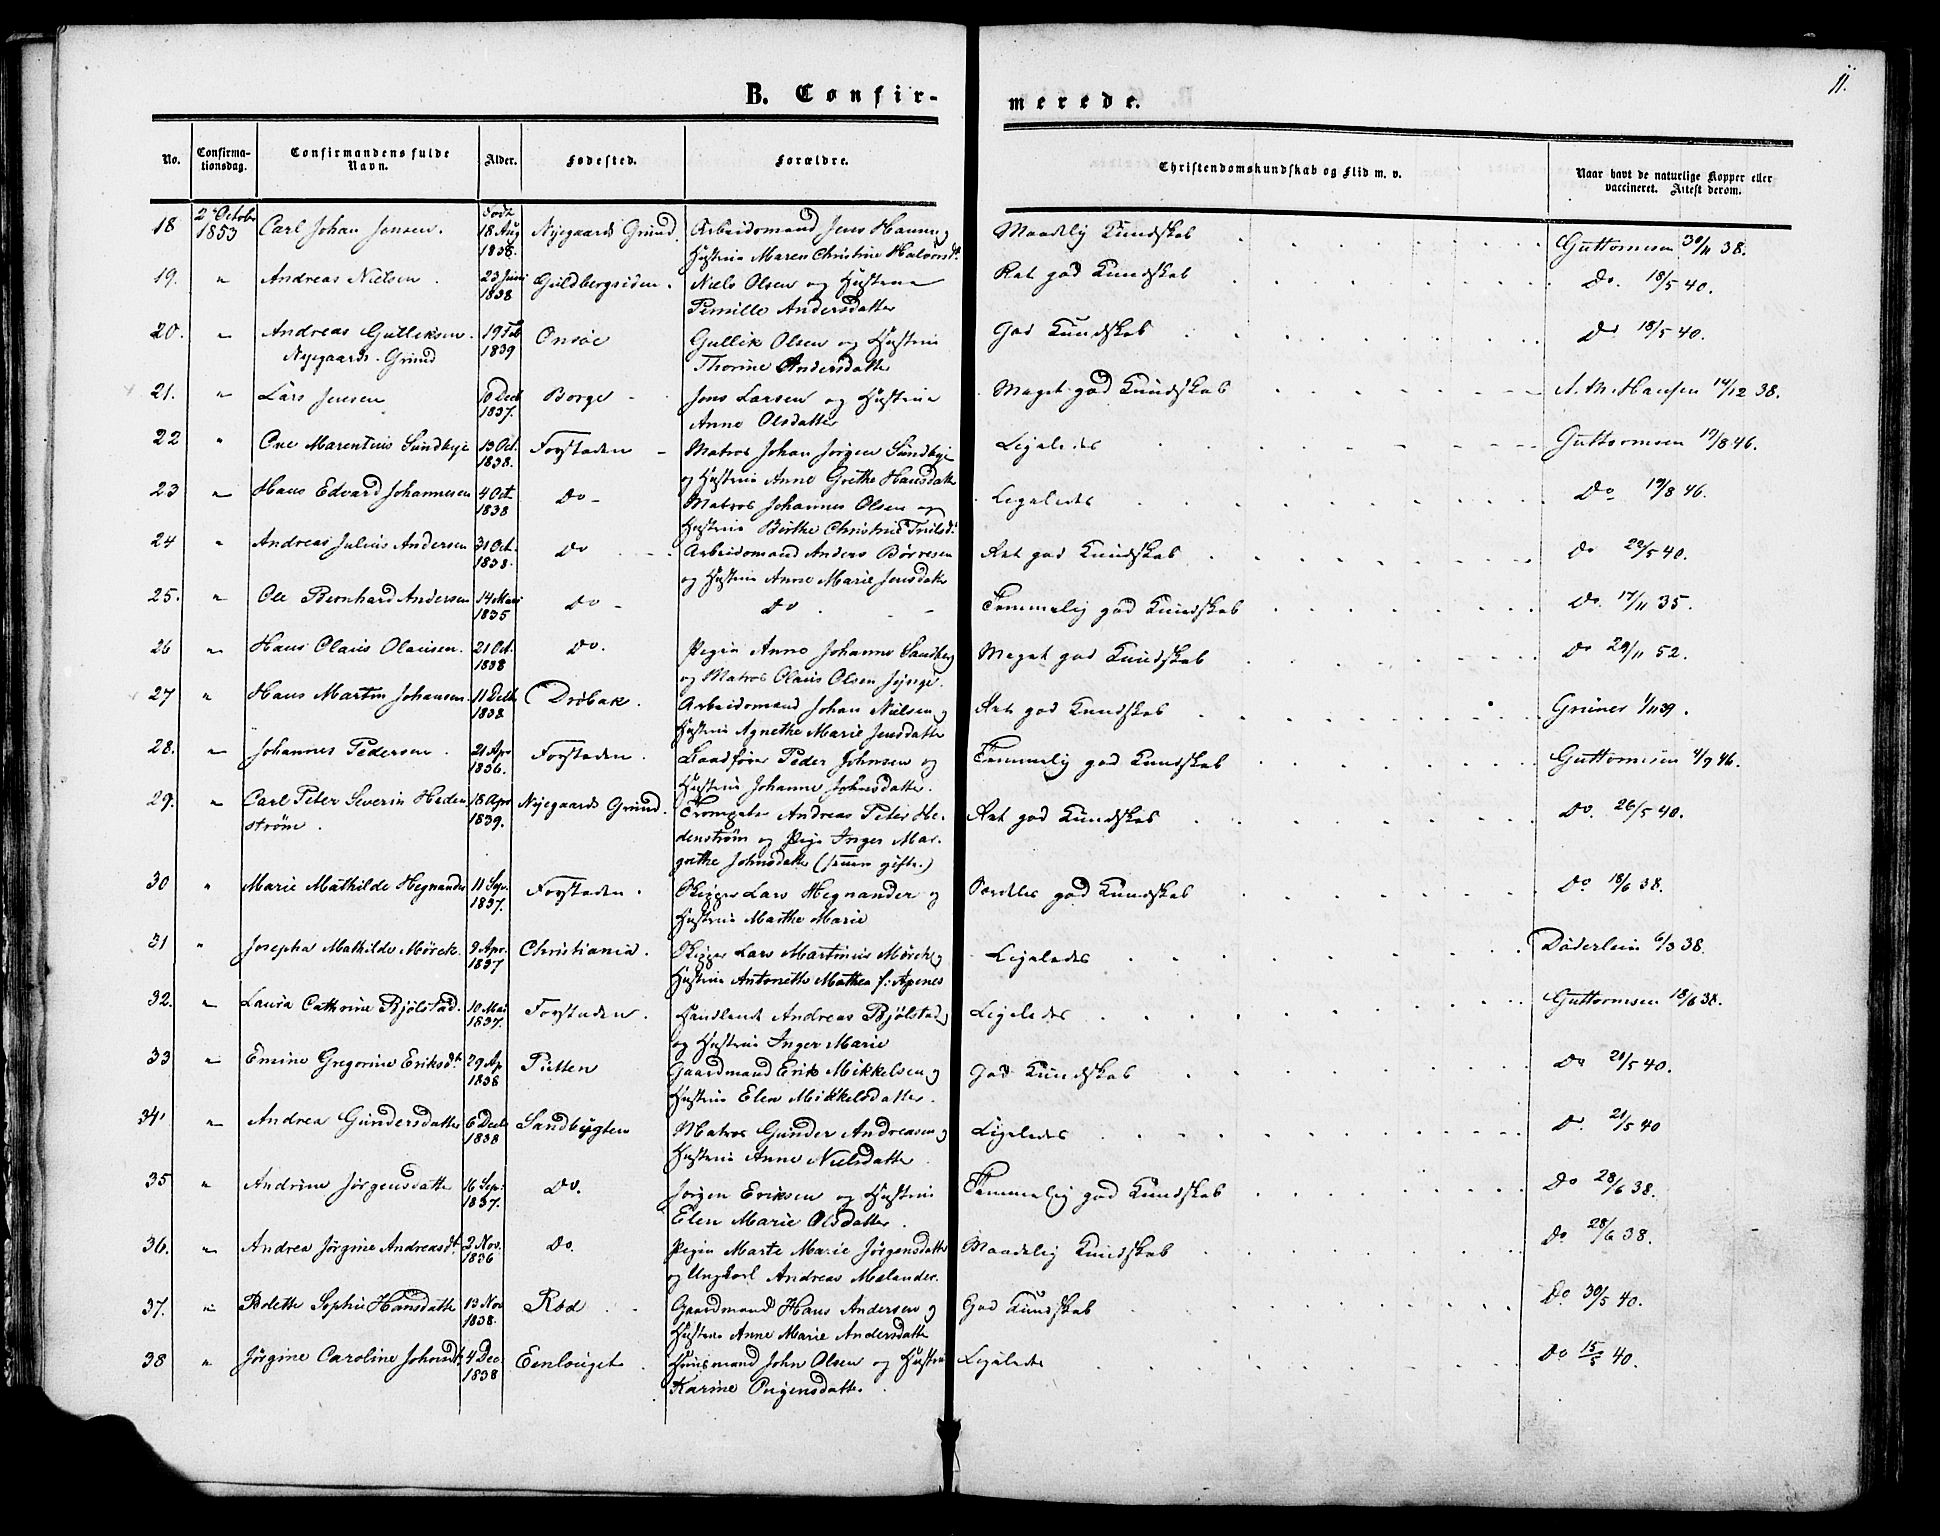 11.
B. Confir-
merede.
No. Confirma-tionsdag. Confirmandens fulde Navn. Alder. Fødested. Forældre. Christendomskundskab og Flid m. v. Naar havt de naturlige Kopper eller vaccineret. Attest derom.
18 2 Octobr 1853 Carl Johan Jensen. Født 18 Aug 1838. Nyegaards Grund. Arbeidsmand Jens Hansen og Maadelig Kundskab Guttormsen 30/11 38.
Hustrue Maren Christine Halvorsd.
19. " Andreas Nielsen. 23 Juni 1838 Guldbergsiden. Niels Olsen og Hustrue Ret god Kundskab Do. 18/5 40.
Pernille Andersdatter
20. " Andreas Gulliksen. 19 Feb 1839 Onsöe Gullik Olsen og Hustrue God Kundskab Do 18/5 40.
Nyegaards Grund Thorine Andersdatter
21. " Lars Jensen 10 Decb 1837. Borge Jens Larsen og Hustrue Meget god Kundskab A. M. Hansen 14/12 38.
Anne Olsdatter
22 " Ove Marentius Sundbye 13 Oct. 1838. Forstaden Matros Johan Jörgen Sundbye Ligeledes Guttormsen 19/8 46.
og Hustrue Anne Grethe Hansdatter
23 " Hans Edvard Johannesen 4 Oct. 1838 Do Matros Johannes Olsen og Ligeledes Do 19/8 46.
Hustrue Birthe Christine
24 " Andreas Julius Andersen 31 Oct. 1838. Do Arbeidsmand Anders Börresen Ret god Kundskab Do 22/5 40.
og Hustrue Anne Marie Jensdatter
25. " Ole Bernhard Andersen 14 1835 Do Do Temmelig god Kundskab Do. 17/11 35.
26 " Hans Claus Olausen. 21 Oct. 1838 Do. Pigen Anne Johanne Sandberg Meget god Kundskab Do 29/11 52.
og Matros Olaus Olsen
27 " Hans Martin Johansen 11 Decb 1838. Dröbak. Arbeidsmand Johan Nielsen og Ret god Kundskab Grüner 1/11 39.
Hustrue Agnethe Marie Jensdatter
28. " Johannes Pedersen. 21 Apr 1836. Forstaden. Peder Johnsen og Temmelig god Kundskab Guttormsen 4/9 46.
Hustrue Johanne Johnsdatter.
29. " Carl Peter Severin Heden 18 Apr 1839. Nyegaards Grund. Andreas Peter He- Ret god Kundskab Do. 26/5 40.
ström. denström og Pige Inger Mar-
grethe Johnsdatter (senere gifte.)
30 " Marie Mathilde Hegnander 11 Sep. 1837. Forstaden. Skipper Lars Hegnander og Særdeles god Kundskab Do 18/6 38.
Hustrue Marthe Marie
31 " Josepha Mathilde Mörck. 9 Apr. 1837 Christiania. Skipper Lars Martinius Mörck og Ligeledes Döderlein 6/3 38.
Hustrue Antonette Mathea f. Apenes
32. " Laura Cathrine Bjölstad. 10 Mai 1837. Forstaden. Handlende Andreas Bjölstad Ligeledes Guttormsen 18/6 38.
og Hustrue Inger Marie
33 " Emine Gregorine Eriksdt. 29 Ap 1838 Putten Gaardmand Erik Mikkelsen og God Kundskab Do 21/5 40.
Hustrue Elen Mikkelsdatter.
34. " Andrea Gundersdatter 6 Decb 1838 Sandbugten Matros Gunder Andreasen og Ligeledes Do. 21/5 40
Hustrue Anne Nielsdatter
35 " Andrine Jörgensdatter 16 Sep. 1837. Do. Jörgen Eriksen og Hustrue Temmelig god Kundskab Do 28/6 38.
Elen Marie Olsdatter.
36. " Andrea Jörgine Andreasdt. 2 Nov. 1836 Do. Pigen Marte Marie Jörgensdatter Maadelig Kundskab Do 28/6 38.
og Ungkarl Andreas Melander.
37. " Bolette Sophie Hansdatter 13 Nov 1838. Röd Gaardmand Hans Andersen og God Kundskab Do 30/5 40.
Hustrue Anne Marie Andersdatter
38 " Jörgine Caroline Johnsdt. 4 Dec. 1838 Eenhuget. Huusmand John Olsen og Hustrue Ligeledes Do 15/5 40.
Karine